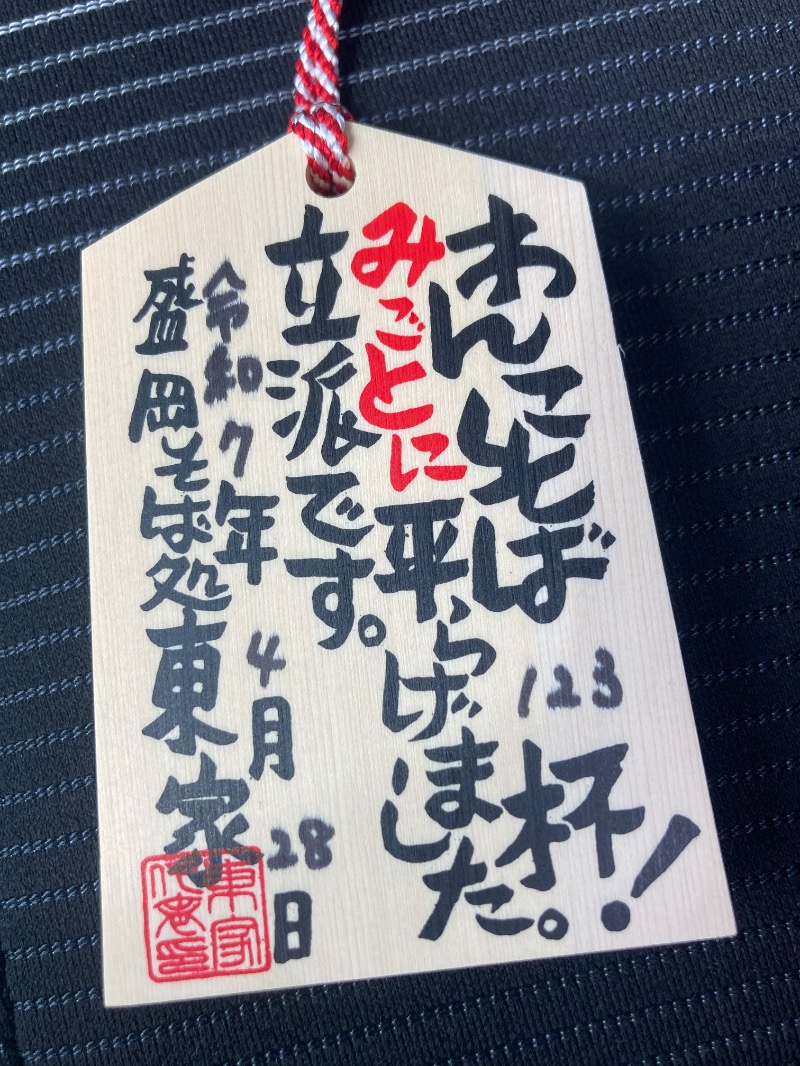 わんこそば 123杯!
みごとに平らげました。
立派です。
令和7年4月28日
盛岡そば処東家
東家
代表印